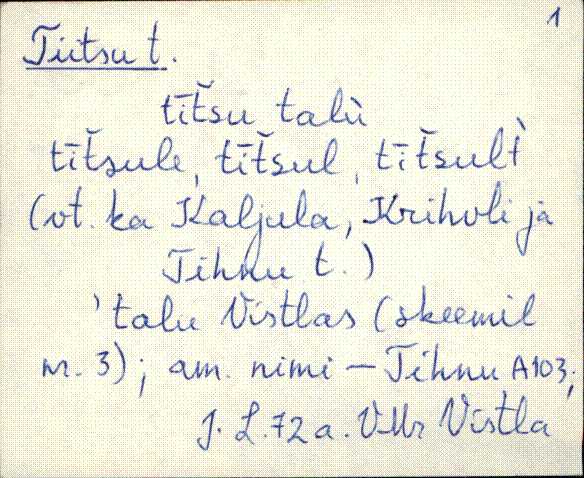 1
Tiitsu t.
tīt̆su talù
tīt̆sule, tīt̆sul, tīt̆sult̀
(vt. ka Kaljula, Krihvli ja
Tihnu t.)
'talu Vistlas (skeemil
nr. 3); am. nimi – Tihnu A103;
J. L. 72 a. VMr Vistla